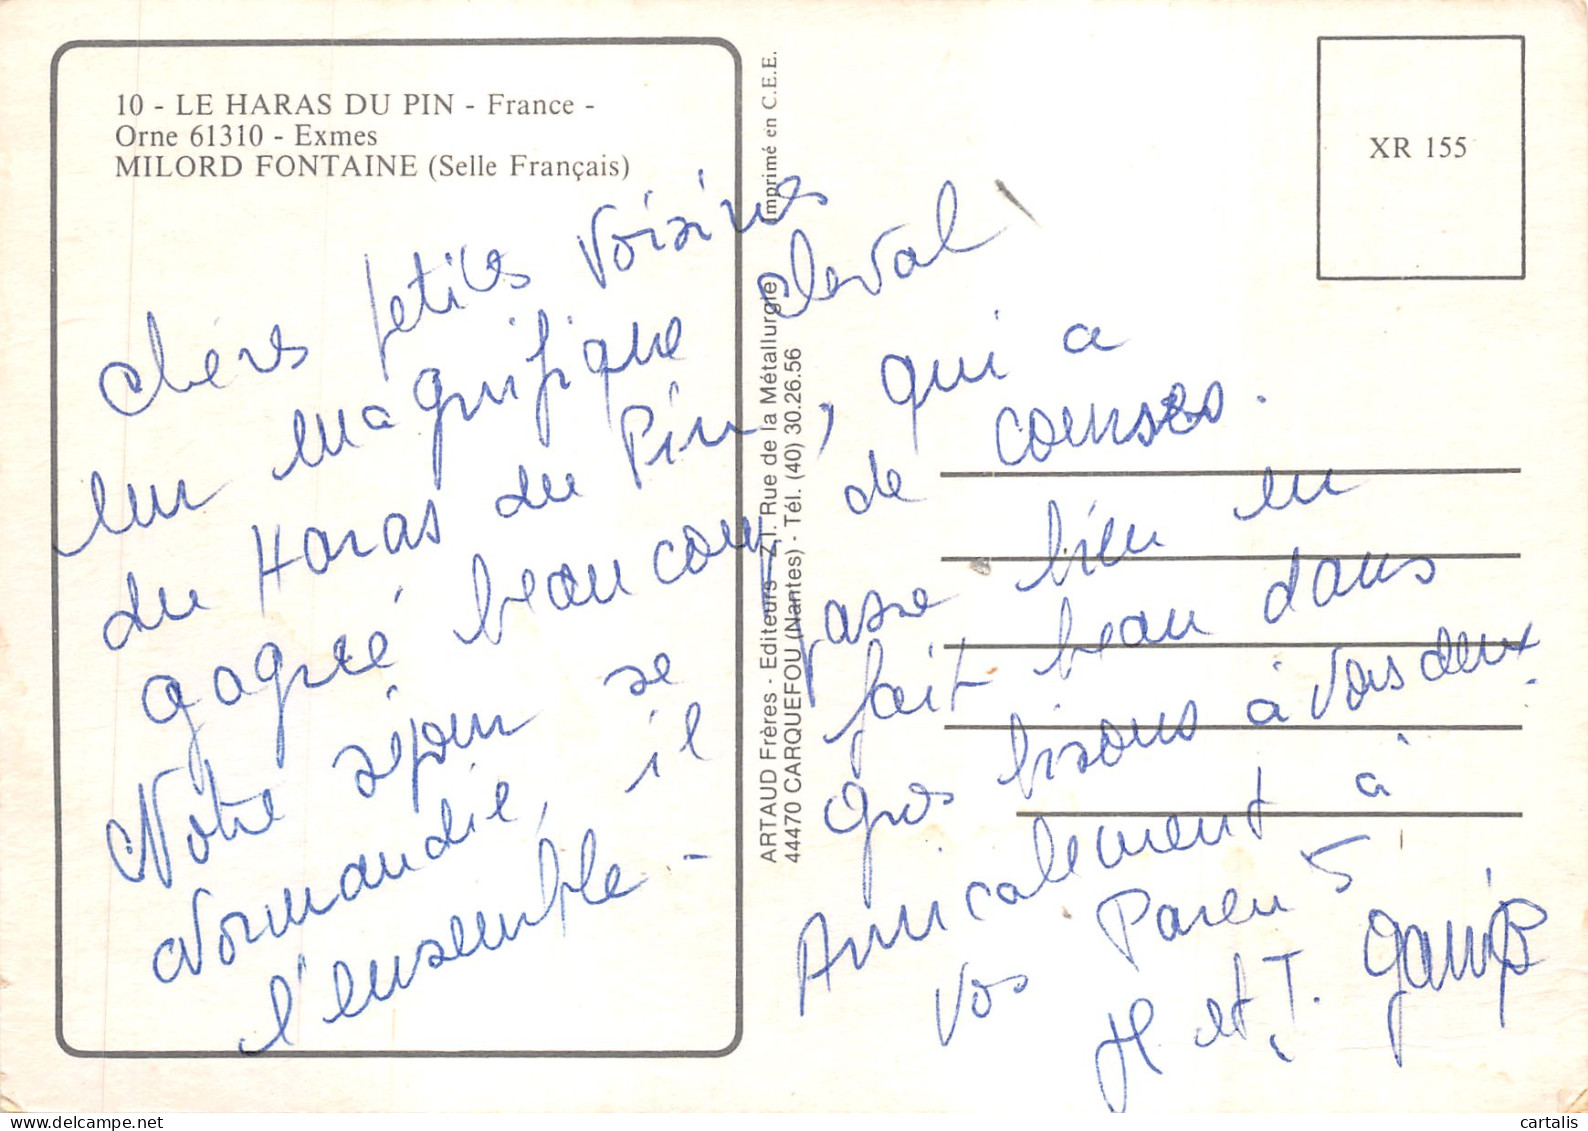 10 - LE HARAS DU PIN - France -
Orne 61310 - Exmes
MILORD FONTAINE (Selle Français)
XR 155
ARTAUD Frères - Editeurs - Z.I. Rue de la Métallurgie
44470 CARQUEFOU (Nantes) - Tél. (40) 30.26.56
Imprimé en C.E.E.
Chères petites voisines
Un magnifique cheval
du Haras du Pin, qui a
gagné beaucoup de courses.
Notre séjour se passe bien en
Normandie, il fait beau dans
l'ensemble - Gros bisous à vous deux.
Amicalement à
vos Parents
H. et J.
cartalis